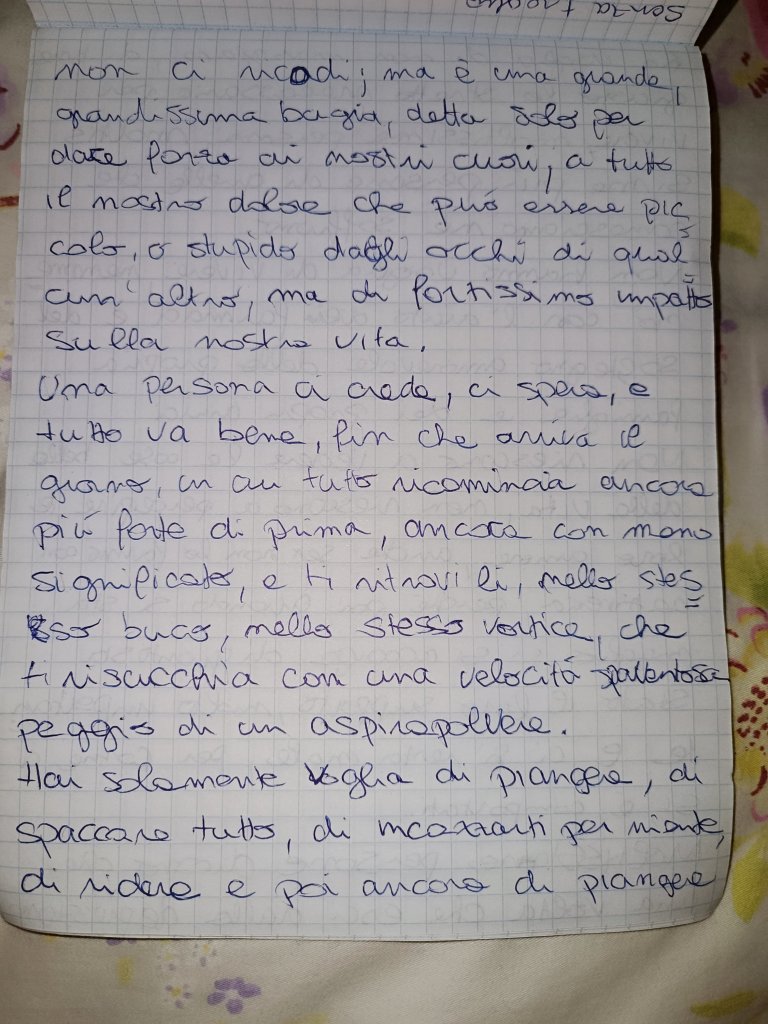 Senza
non ci ricadi; ma è una grande,
grandissima bugia, detta solo per
dare forza ai nostri cuori, a tutto
il nostro dolore che può essere pic
colo, o stupido dagli occhi di qual
cun' altro, ma di fortissimo impatto
sulla nostra vita.
Una persona ci crede, ci spera, e
tutto va bene, fin che arriva il
giorno, in cui tutto ricomincia ancora
più forte di prima, ancora con meno
significato, e ti ritrovi lì, nello stes
sso buco, nello stesso vortice, che
ti risucchia con una velocità spaventosa
peggio di un aspirapolvere.
Hai solamente voglia di piangere, di
spaccare tutto, di incazzarti per niente,
di ridere e poi ancora di piangere